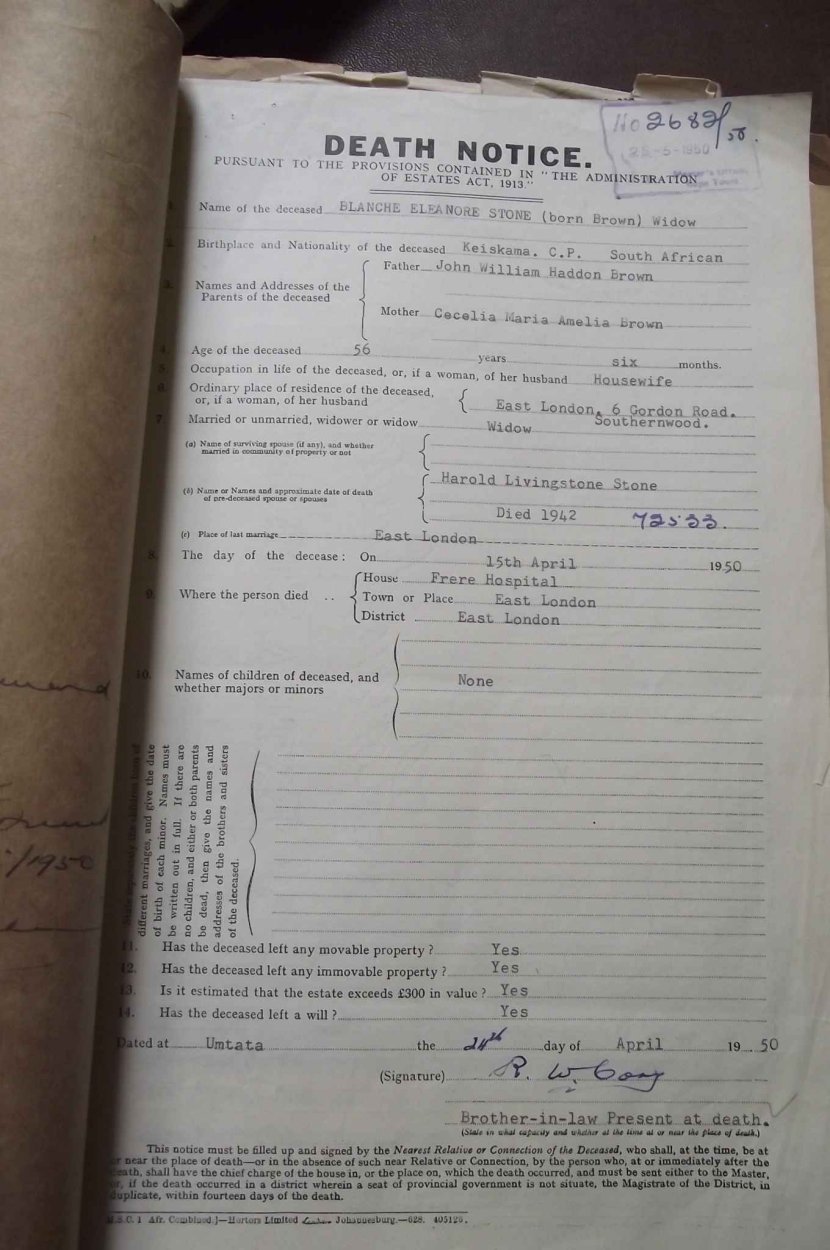 No 2682/50.
25-5-1950
DEATH NOTICE.
PURSUANT TO THE PROVISIONS CONTAINED IN "THE ADMINISTRATION
OF ESTATES ACT, 1913."
Name of the deceased BLANCHE ELEANORE STONE (born Brown) Widow
2. Birthplace and Nationality of the deceased Keiskama. C.P. South African
3. Names and Addresses of the Parents of the deceased
Father John William Haddon Brown
Mother Cecelia Maria Amelia Brown
4. Age of the deceased 56 years six months.
5. Occupation in life of the deceased, or, if a woman, of her husband Housewife
6. Ordinary place of residence of the deceased,
or, if a woman, of her husband East London, 6 Gordon Road.
Southernwood.
7. Married or unmarried, widower or widow Widow
(a) Name of surviving spouse (if any), and whether
married in community of property or not
(b) Name or Names and approximate date of death
of pre-deceased spouse or spouses
Harold Livingstone Stone
Died 1942 72533.
(c) Place of last marriage East London
8. The day of the decease: On 15th April 1950
9. Where the person died ..
House Frere Hospital
Town or Place East London
District East London
10. Names of children of deceased, and
whether majors or minors
None
different marriages, and give the date
of birth of each minor. Names must
be written out in full. If there are
no children, and either or both parents
be dead, then give the names and
addresses of the brothers and sisters
of the deceased.
11. Has the deceased left any movable property? Yes
12. Has the deceased left any immovable property? Yes
13. Is it estimated that the estate exceeds £300 in value? Yes
14. Has the deceased left a will? Yes
Dated at Umtata the 24th day of April 19 50
(Signature) R. W.
Brother-in-law Present at death.
(State in what capacity and whether at the time at or near the place of death.)
This notice must be filled up and signed by the Nearest Relative or Connection of the Deceased, who shall, at the time, be at
or near the place of death—or in the absence of such near Relative or Connection, by the person who, at or immediately after the
death, shall have the chief charge of the house in, or the place on, which the death occurred, and must be sent either to the Master,
or, if the death occurred in a district wherein a seat of provincial government is not situate, the Magistrate of the District, in
duplicate, within fourteen days of the death.
Afr. Combined]—Hortors Limited Johannesburg.—628. 405126.
/1950